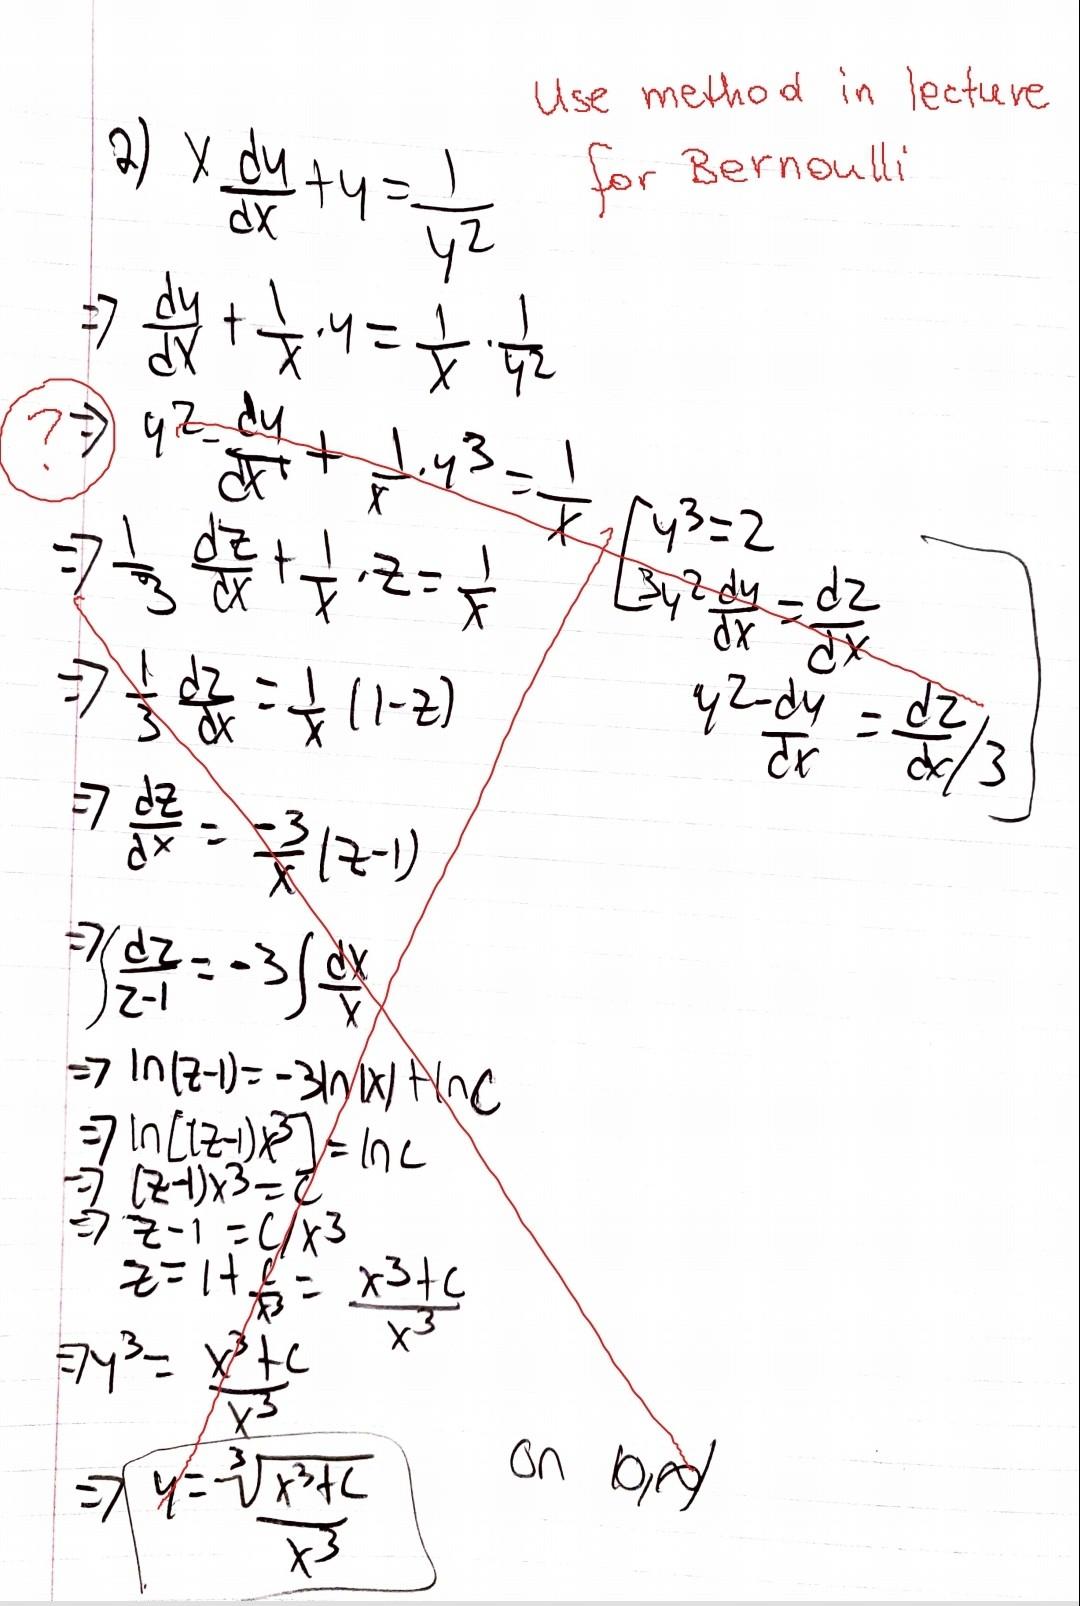 Use method in lecture
for Bernoulli
2) x dy/dx + y = 1/y^2
⇒ dy/dx + 1/x · y = 1/x · 1/y^2
? ⇒ y^2 - dy/dx + 1/x · y^3 = 1/x
[y^3 = z
3y^2 dy/dx = dz/dx
y^2 - dy/dx = dz/dx /3 ]
⇒ 1/3 dz/dx + 1/x · z = 1/x
⇒ 1/3 dz/dx = 1/x (1-z)
⇒ dz/dx = -3/x (z-1)
⇒ ∫ dz/z-1 = -3 ∫ dx/x
⇒ ln(z-1) = -3ln|x| + lnc
⇒ ln[(z-1)x^3] = lnc
⇒ (z-1)x^3 = c
⇒ z-1 = c/x^3
z = 1 + c/x^3 = x^3+c/x^3
⇒ y^3 = x^3+c/x^3
⇒ y = ∛x^3+c/x^3 on (0,∞)